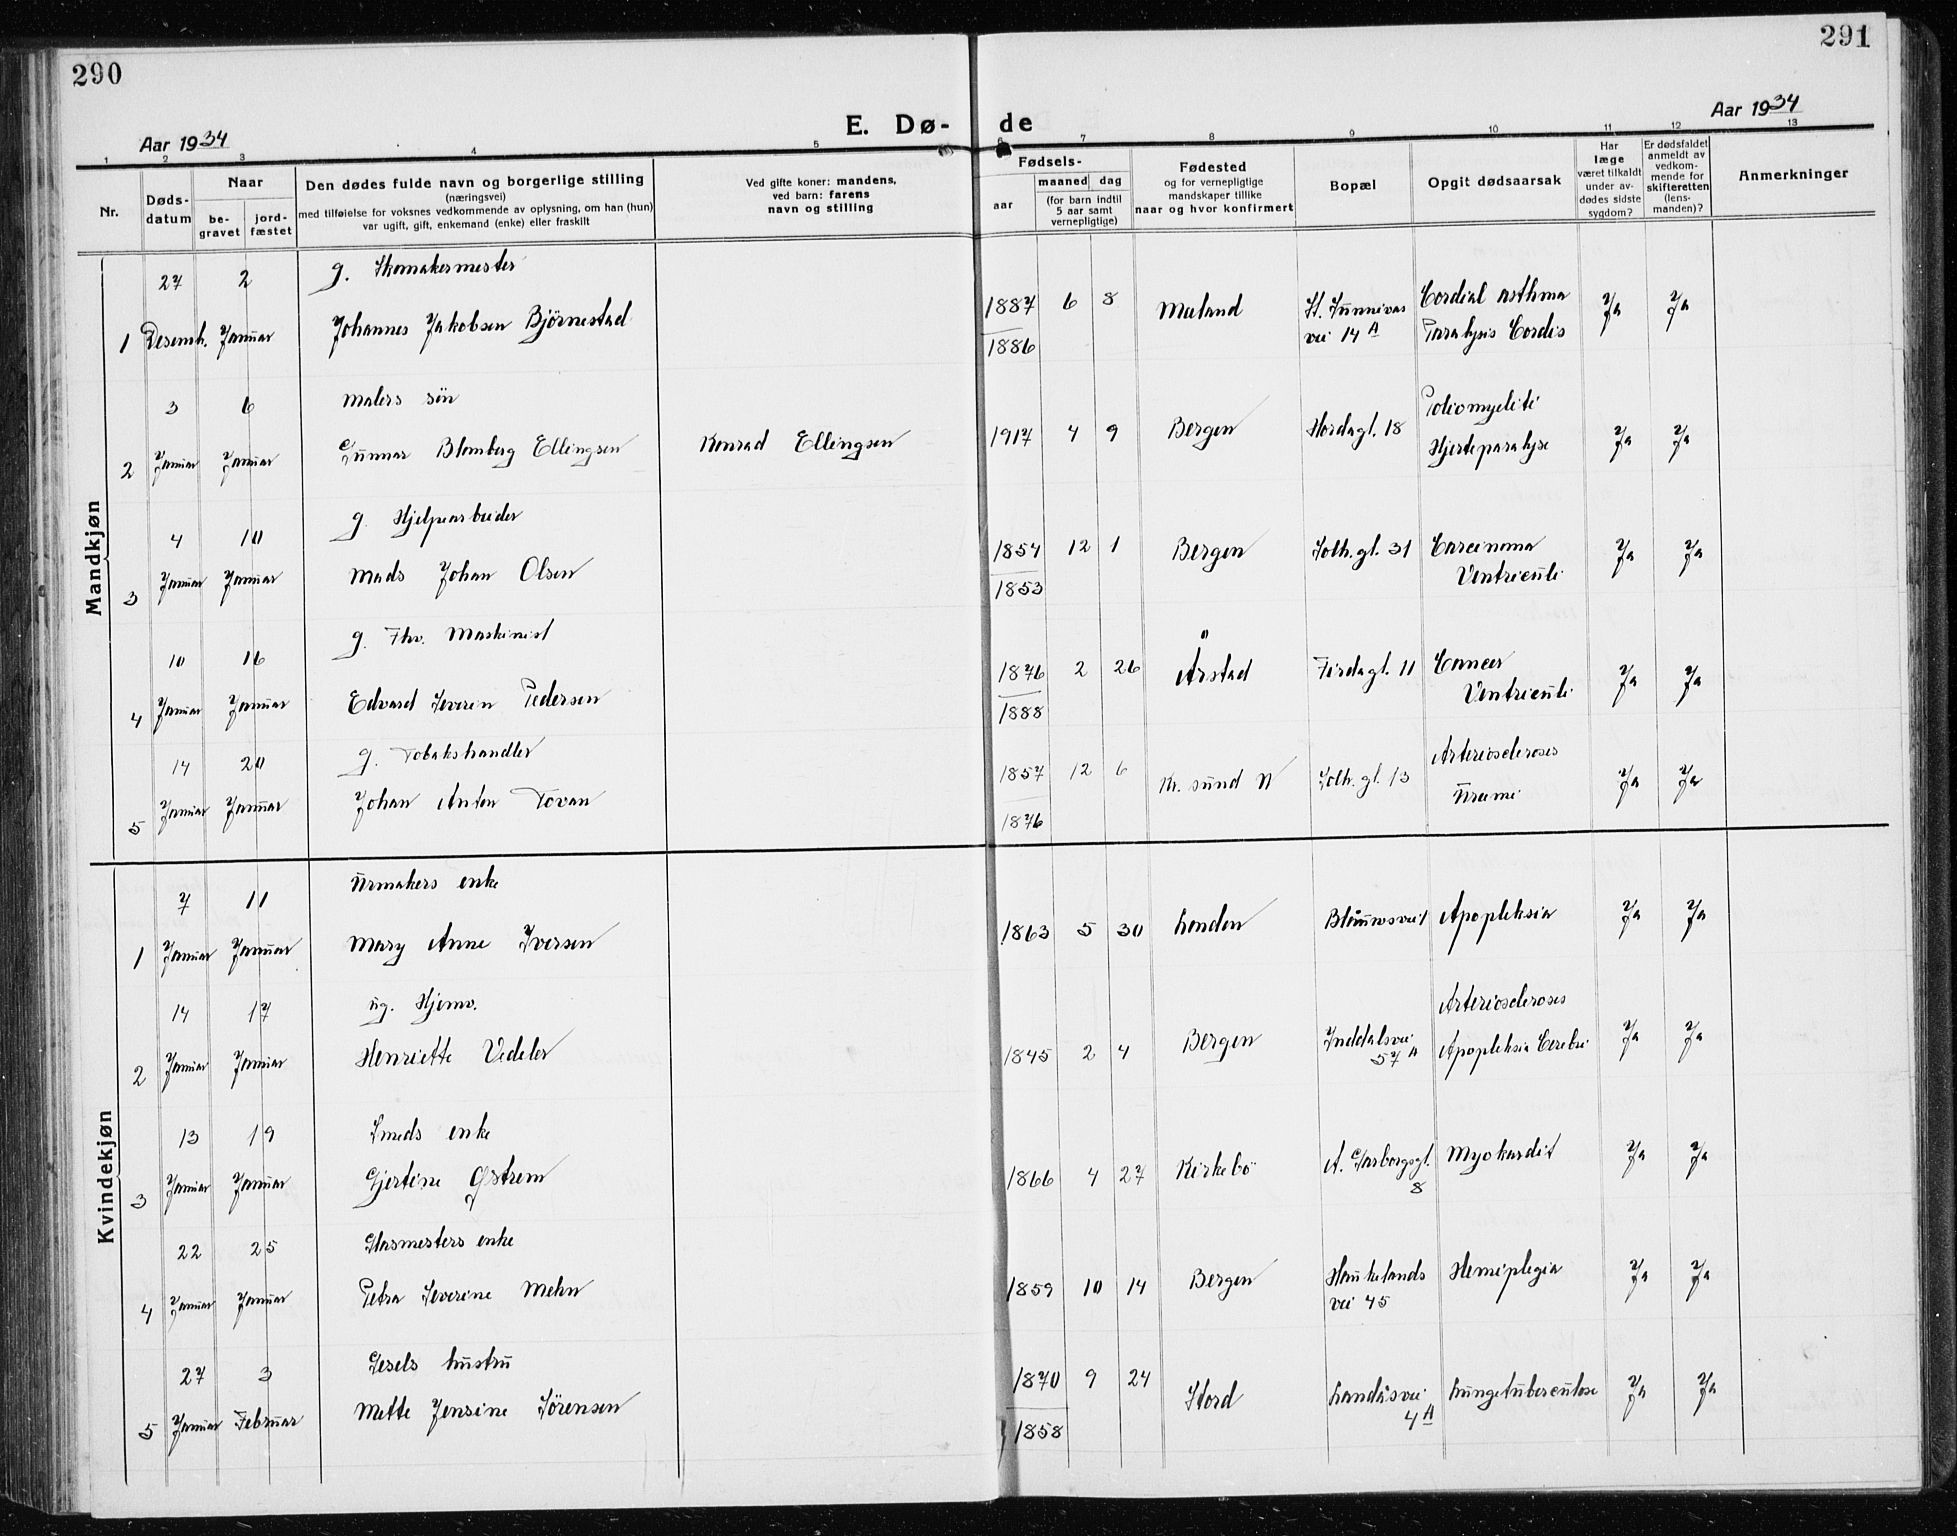 290
291
Aar 1934
E. Dø-
de
Aar 1934
1 2 3 4 5 6 7 8 9 10 11 12 13
Nr.
Døds-
datum
Naar
be-
gravet
jord-
fæstet
Den dødes fulde navn og borgerlige stilling
(næringsvei)
med tilføielse for voksnes vedkommende av oplysning, om han (hun)
var ugift, gift, enkemand (enke) eller fraskilt
Ved gifte koner: mandens,
ved barn: farens
navn og stilling
Fødsels-
aar
maaned dag
(for barn indtil
5 aar samt
vernepligtige)
Fødested
og for vernepligtige
mandskaper tillike
naar og hvor konfirmert
Bopæl
Opgit dødsaarsak
Har
læge
været tilkaldt
under av-
dødes sidste
sygdom?
Er dødsfaldet
anmeldt av
vedkom-
mende for
skifteretten
(lens-
manden)?
Anmerkninger
Mandkjøn
27 2 g. Skomakermester
1 Desemb. Januar Johannes Jakobsen Bjørnestad
1887 6 8 St. Sunnivas Cordial asthma Ja Ja
1886 vei 14 A Paralysis Cordis
3 6 Malers søn
2 Januar Januar Gunnar Blomberg Ellingsen Konrad Ellingsen
1917 4 9 Bergen Hordagt. 18 Poliomyeliti Ja Ja
Hjerteparalyse
4 10 g. Hjelpearbeider
3 Januar Januar Mads Johan Olsen
1854 12 1 Bergen Solh. gt. 31 Carcinoma Ja Ja
1853 Ventriculi
10 16 g. Fhv. Maskinist
4 Januar Januar Edvard Severin Pedersen
1876 2 26 Årstad Firdagt. 11 Cancer Ja Ja
1888 Ventriculi
14 20 g. Tobakshandler
5 Januar Januar Johan Anton Tovan
1857 12 6 Kr. sund N Solh. gt. 13 Arteriosclerosis Ja Ja
1876 Uremi
Kvindekjøn
7 11 Urmakers enke
1 Januar Januar Mary Anne Iversen
1863 5 30 London Apopleksia Ja Ja
14 17 ug. Hjemv.
2 Januar Januar Henriette Vedeler
1845 2 4 Bergen Inddalsvei Arteriosclerosis Ja Ja
57 A Apopleksia Cerebri
13 19 Smeds enke
3 Januar Januar Gjertine Østrem
1866 4 27 Kirkebö A. Garborgsgt. Myokardit Ja Ja
8
22 25 Glasmesters enke
4 Januar Januar Petra Severine Mehn
1859 10 14 Bergen Haukelands Hemiplegia Ja Ja
vei 45
27 3 Gesels hustru
5 Januar Februar Mette Jensine Sörensen
1870 9 24 Stord Landåsvei Lungetuberculose Ja Ja
1858 4 A